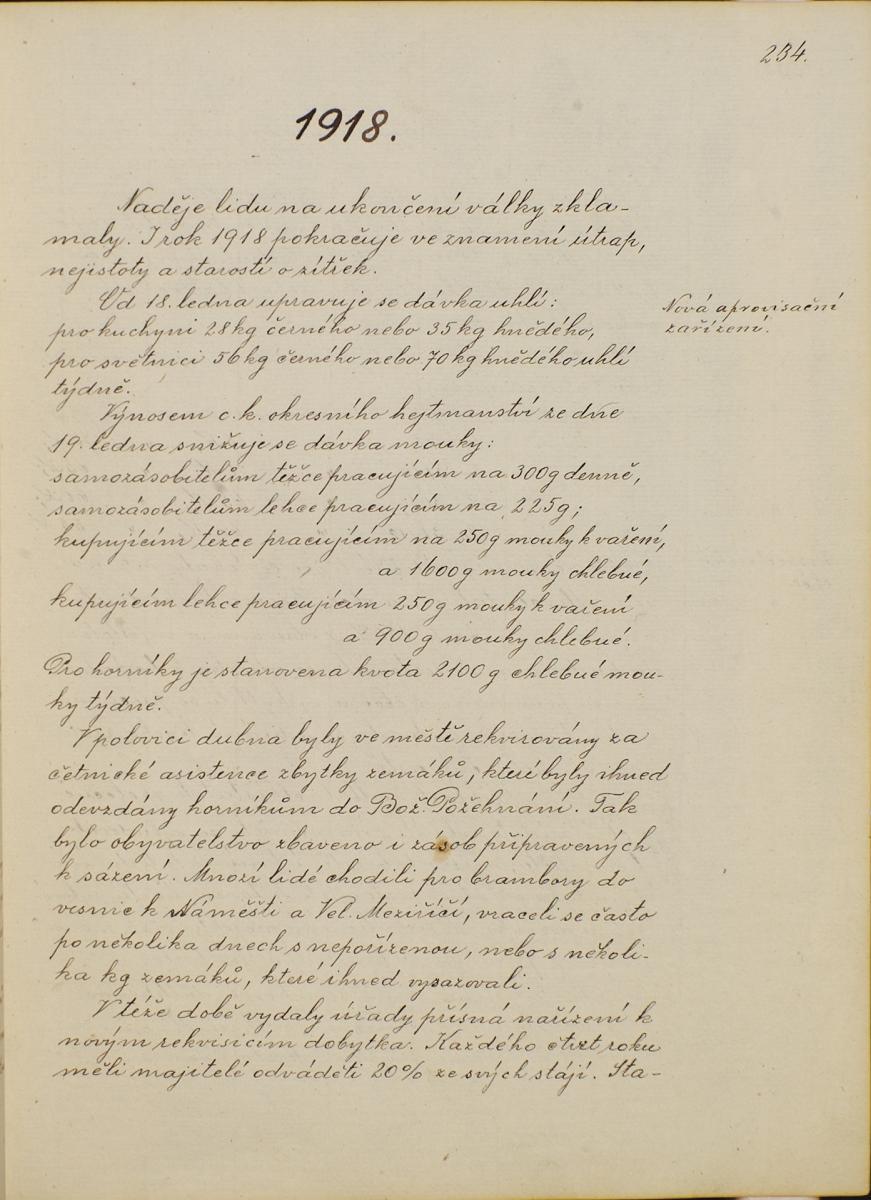 234.
1918.
Naděje lidu na ukončení války zkla-
maly. I rok 1918 pokračuje ve znamení útrap,
nejistoty a starostí o zítřek.
Od 18. ledna upravuje se dávka uhlí:
Nová aprovisační
zařízení.
pro kuchyni 28 kg černého nebo 35 kg hnědého,
pro světnici 56 kg černého nebo 70 kg hnědého uhlí
týdně.
Výnosem c. k. okresního hejtmanství ze dne
19. ledna snižuje se dávka mouky:
samozásobitelům těžce pracujícím na 300 g denně,
samozásobitelům lehce pracujícím na 225 g;
kupujícím těžce pracujícím na 250 g mouky k vaření,
a 1600 g mouky chlebné,
kupujícím lehce pracujícím 250 g mouky k vaření
a 900 g mouky chlebné.
Pro horníky je stanovena kvota 2100 g chlebné mou-
ky týdně.
V polovici dubna byly ve městě rekvirovány za
četnické asistence zbytky zemáků, které byly ihned
odevzdány horníkům do Bož. Požehnání. Tak
bylo obyvatelstvo zbaveno i zásob připravených
k sázení. Mnozí lidé chodili pro brambory do
vesnic k Náměšti a Vel. Meziříčí, vraceli se často
po několika dnech s nepořízenou, nebo s několi-
ka kg zemáků, které ihned vysazovali.
V téže době vydaly úřady přísná nařízení k
novým rekvisicím dobytka. Každého čtvrt roku
měli majitelé odváděti 20% ze svých stájí. Sta-